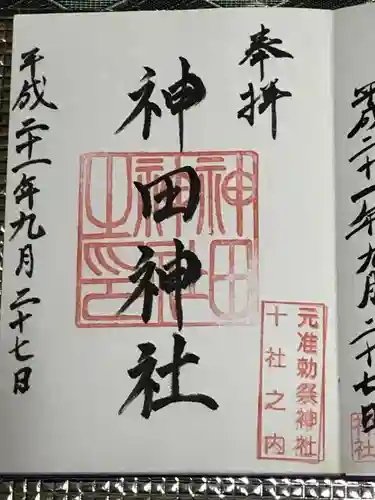 奉拝
神田神社
平成二十一年九月二十七日
神田
神社
之印
元准勅祭神社
十社之内
平成二十一年九月二十七日
神社